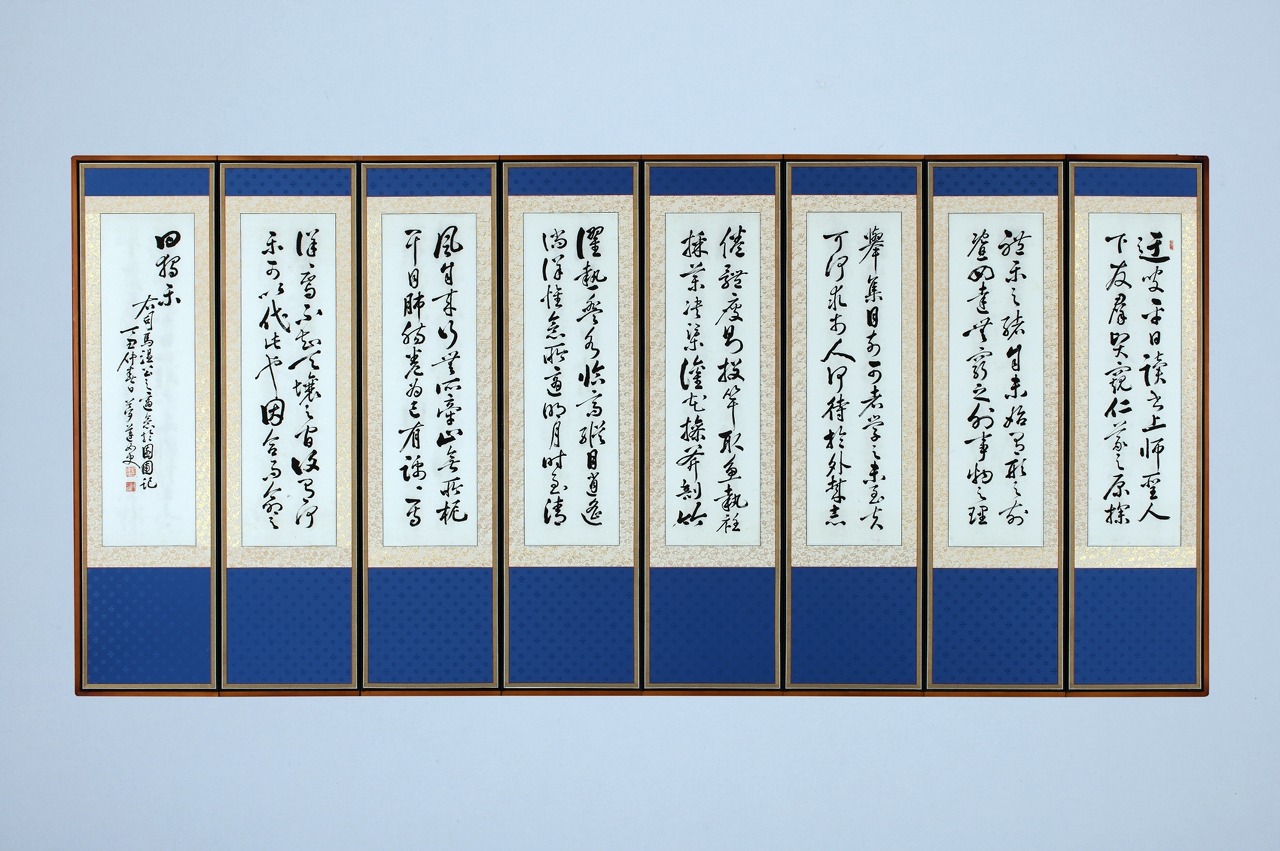 迂叟平日讀書上師聖人
下友群賢窺仁義之原探
禮樂之緒自未始有形之前
暨四達無窮之外事物之理
舉集目前可者學之未至夫
可何求於人何待於外哉志
倦體疲則投竿取魚執衽
採藥決渠灌花操斧剖竹
濯熱盥水臨高縱目逍遙
徜徉惟意所適明月時至清
風自來行無所牽止無所柅
耳目肺腸卷為己有踽〻焉
洋焉不知天壤之間復有何
樂可以代此也因合而命之
曰獨樂
右司馬溫公之適意於園圃記
丁丑仲春日 夢蓮